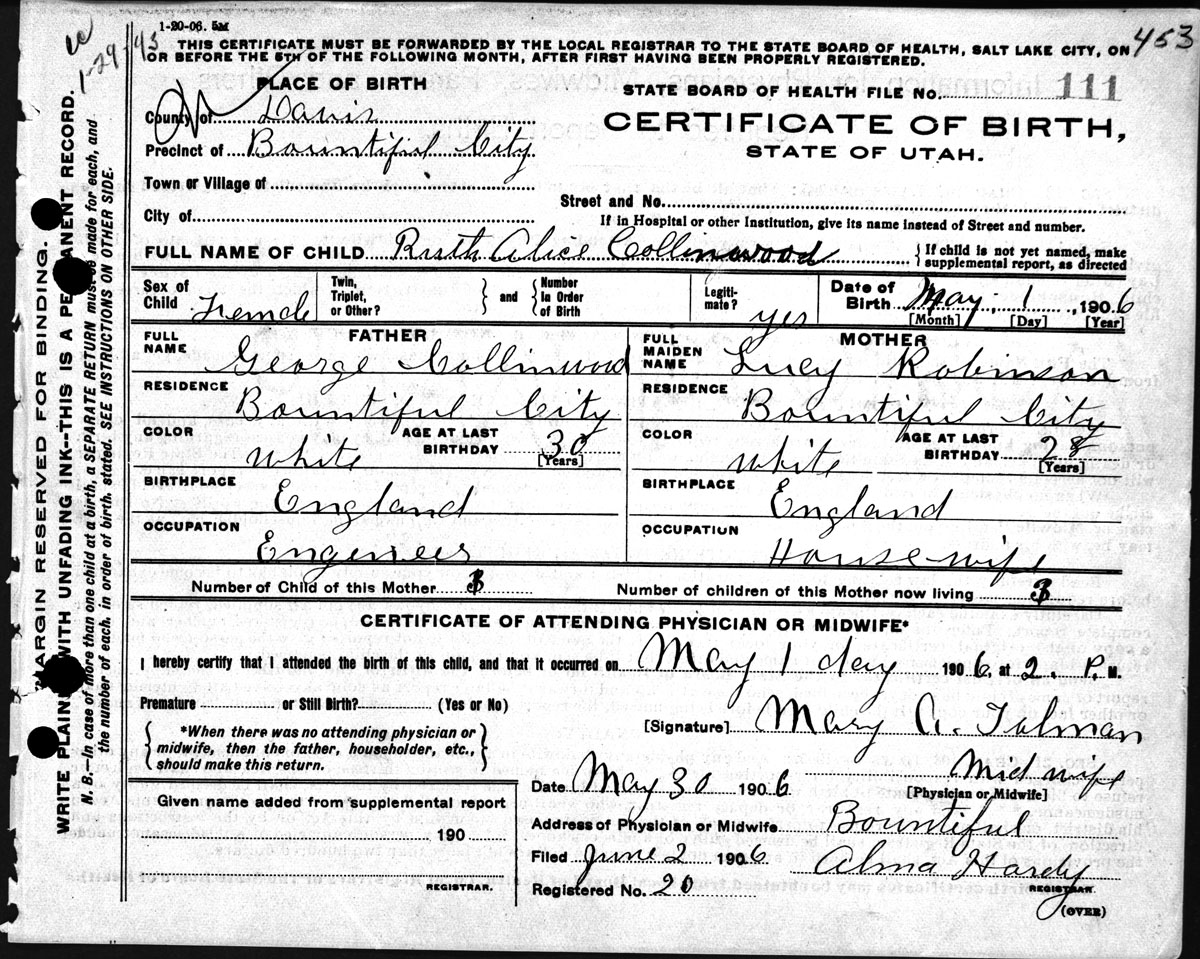 1-20-06. 5M
1-29-43
453
THIS CERTIFICATE MUST BE FORWARDED BY THE LOCAL REGISTRAR TO THE STATE BOARD OF HEALTH, SALT LAKE CITY, ON
OR BEFORE THE 5TH OF THE FOLLOWING MONTH, AFTER FIRST HAVING BEEN PROPERLY REGISTERED.
PLACE OF BIRTH
STATE BOARD OF HEALTH FILE No. 111
County of Davis
CERTIFICATE OF BIRTH,
Precinct of Bountiful City
STATE OF UTAH.
Town or Village of
Street and No.
City of
If in Hospital or other Institution, give its name instead of Street and number.
FULL NAME OF CHILD Ruth Alice Collinwood
{ If child is not yet named, make
supplemental report, as directed
Sex of Child Female
Twin, Triplet, or Other? } and { Number In Order of Birth
Legiti- mate? yes
Date of Birth May 1, 1906
[Month] [Day] [Year]
FATHER
FULL NAME George Collinwood
RESIDENCE
Bountiful City
COLOR White AGE AT LAST BIRTHDAY 30 [Years]
BIRTHPLACE
England
OCCUPATION
Engineer
MOTHER
FULL MAIDEN NAME Lucy Robinson
RESIDENCE
Bountiful City
COLOR White AGE AT LAST BIRTHDAY 28 [Years]
BIRTHPLACE
England
OCCUPATION
Housewife
Number of Child of this Mother 3
Number of children of this Mother now living 3
CERTIFICATE OF ATTENDING PHYSICIAN OR MIDWIFE*
I hereby certify that I attended the birth of this child, and that it occurred on May 1 day 1906, at 2. P. M.
Premature or Still Birth? (Yes or No)
{ *When there was no attending physician or
midwife, then the father, householder, etc.,
should make this return. }
[Signature] Mary A. Tolman
Midwife
[Physician or Midwife]
Date May 30 1906
Address of Physician or Midwife Bountiful
Filed June 2 1906 Alma Hardy
REGISTRAR.
Registered No. 20
(OVER)
Given name added from supplemental report
190
REGISTRAR.
MARGIN RESERVED FOR BINDING.
WRITE PLAINLY WITH UNFADING INK--THIS IS A PERMANENT RECORD.
N. B.--In case of more than one child at a birth, a SEPARATE RETURN must be made for each, and
the number of each, in order of birth, stated. SEE INSTRUCTIONS ON OTHER SIDE.